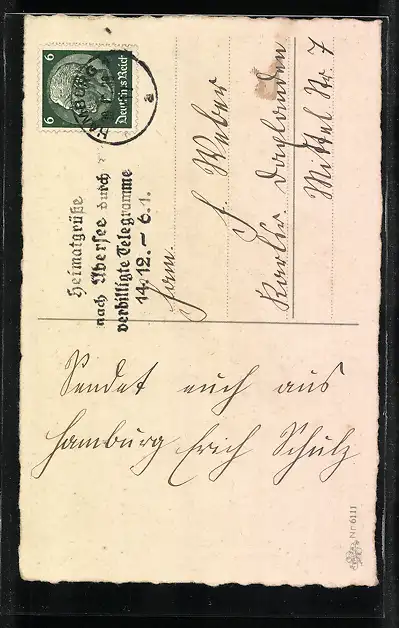 6 Deutsches Reich 6
HAMBURG
a
Heimatgrüße
nach Übersee durch
verbilligte Telegramme
14.12. – 6.1.
Herrn.
F. Weber
Karlsr. Daxlanden
Mittel Str 7
Sendet euch aus
Hamburg Erich Schulz
Nr 6111